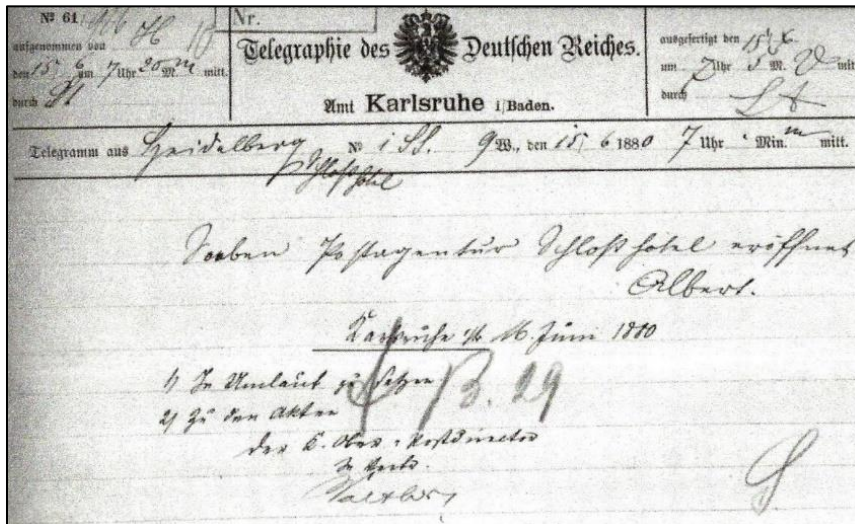 Nº 61
Nr.
aufgenommen von H
den 15/6 um 7 Uhr 20 M. mitt.
durch
Telegraphie des Deutschen Reiches.
Amt Karlsruhe i/Baden.
ausgefertigt den 15/6
um 7 Uhr M. mitt
durch
Telegramm aus Heidelberg Nº 1 9 W., den 15/6 1880 7 Uhr Min. mitt.
Schloßhotel
Soeben Postagentur Schloßhotel eröffnet
Albert.
Karlsruhe 16 Juni 1880
1) In Umlauf zu setzen
2) Zu den Akten
B. 29
der K. Ober-Postdirector